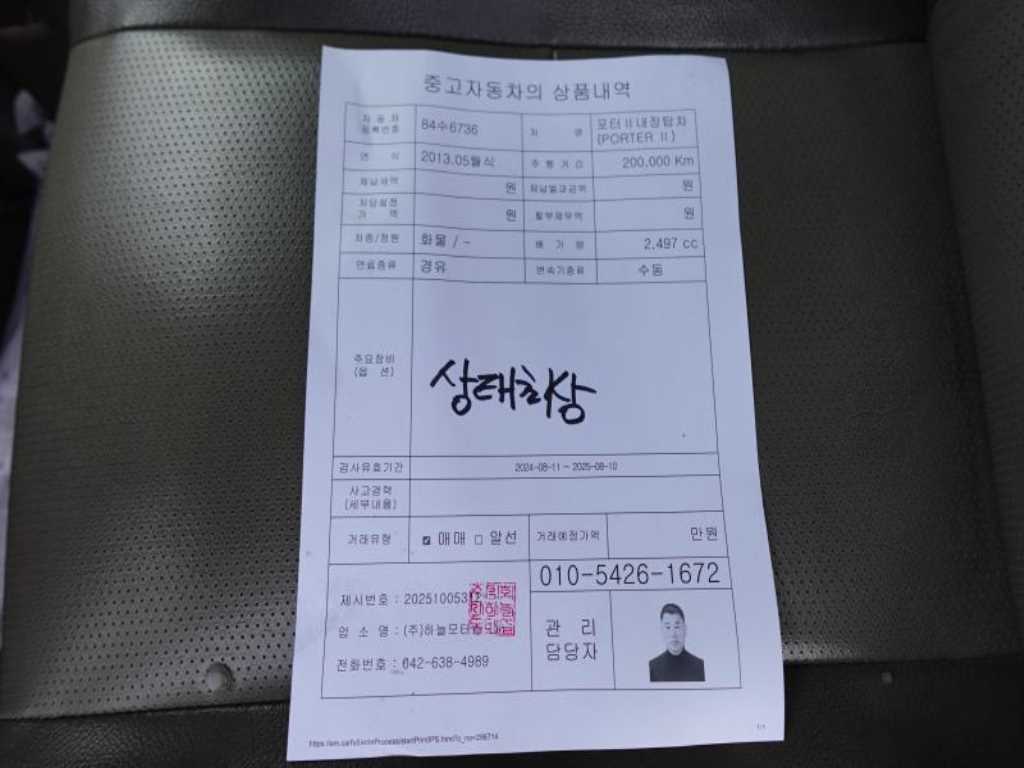 중고자동차의 상품내역
자동차 등록번호 84수6736 차 명 포터Ⅱ내장탑차 (PORTER Ⅱ)
연 식 2013.05월식 주행거리 200,000 Km
원 원
원 원
차종/정원 화물 / - 배 기 량 2,497 cc
연료종류 경유 변속기종류 수동
주요장비 (옵 션) 상태최상
검사유효기간 2024-08-11 ~ 2025-08-10
사고경력 (세부내용)
거래유형 ☑ 매매 □ 알선 거래예정가격 만원
010-5426-1672
제시번호 :
업 소 명 : (주)하늘모터
전화번호 : 042-638-4989
관 리
담당자
1/1